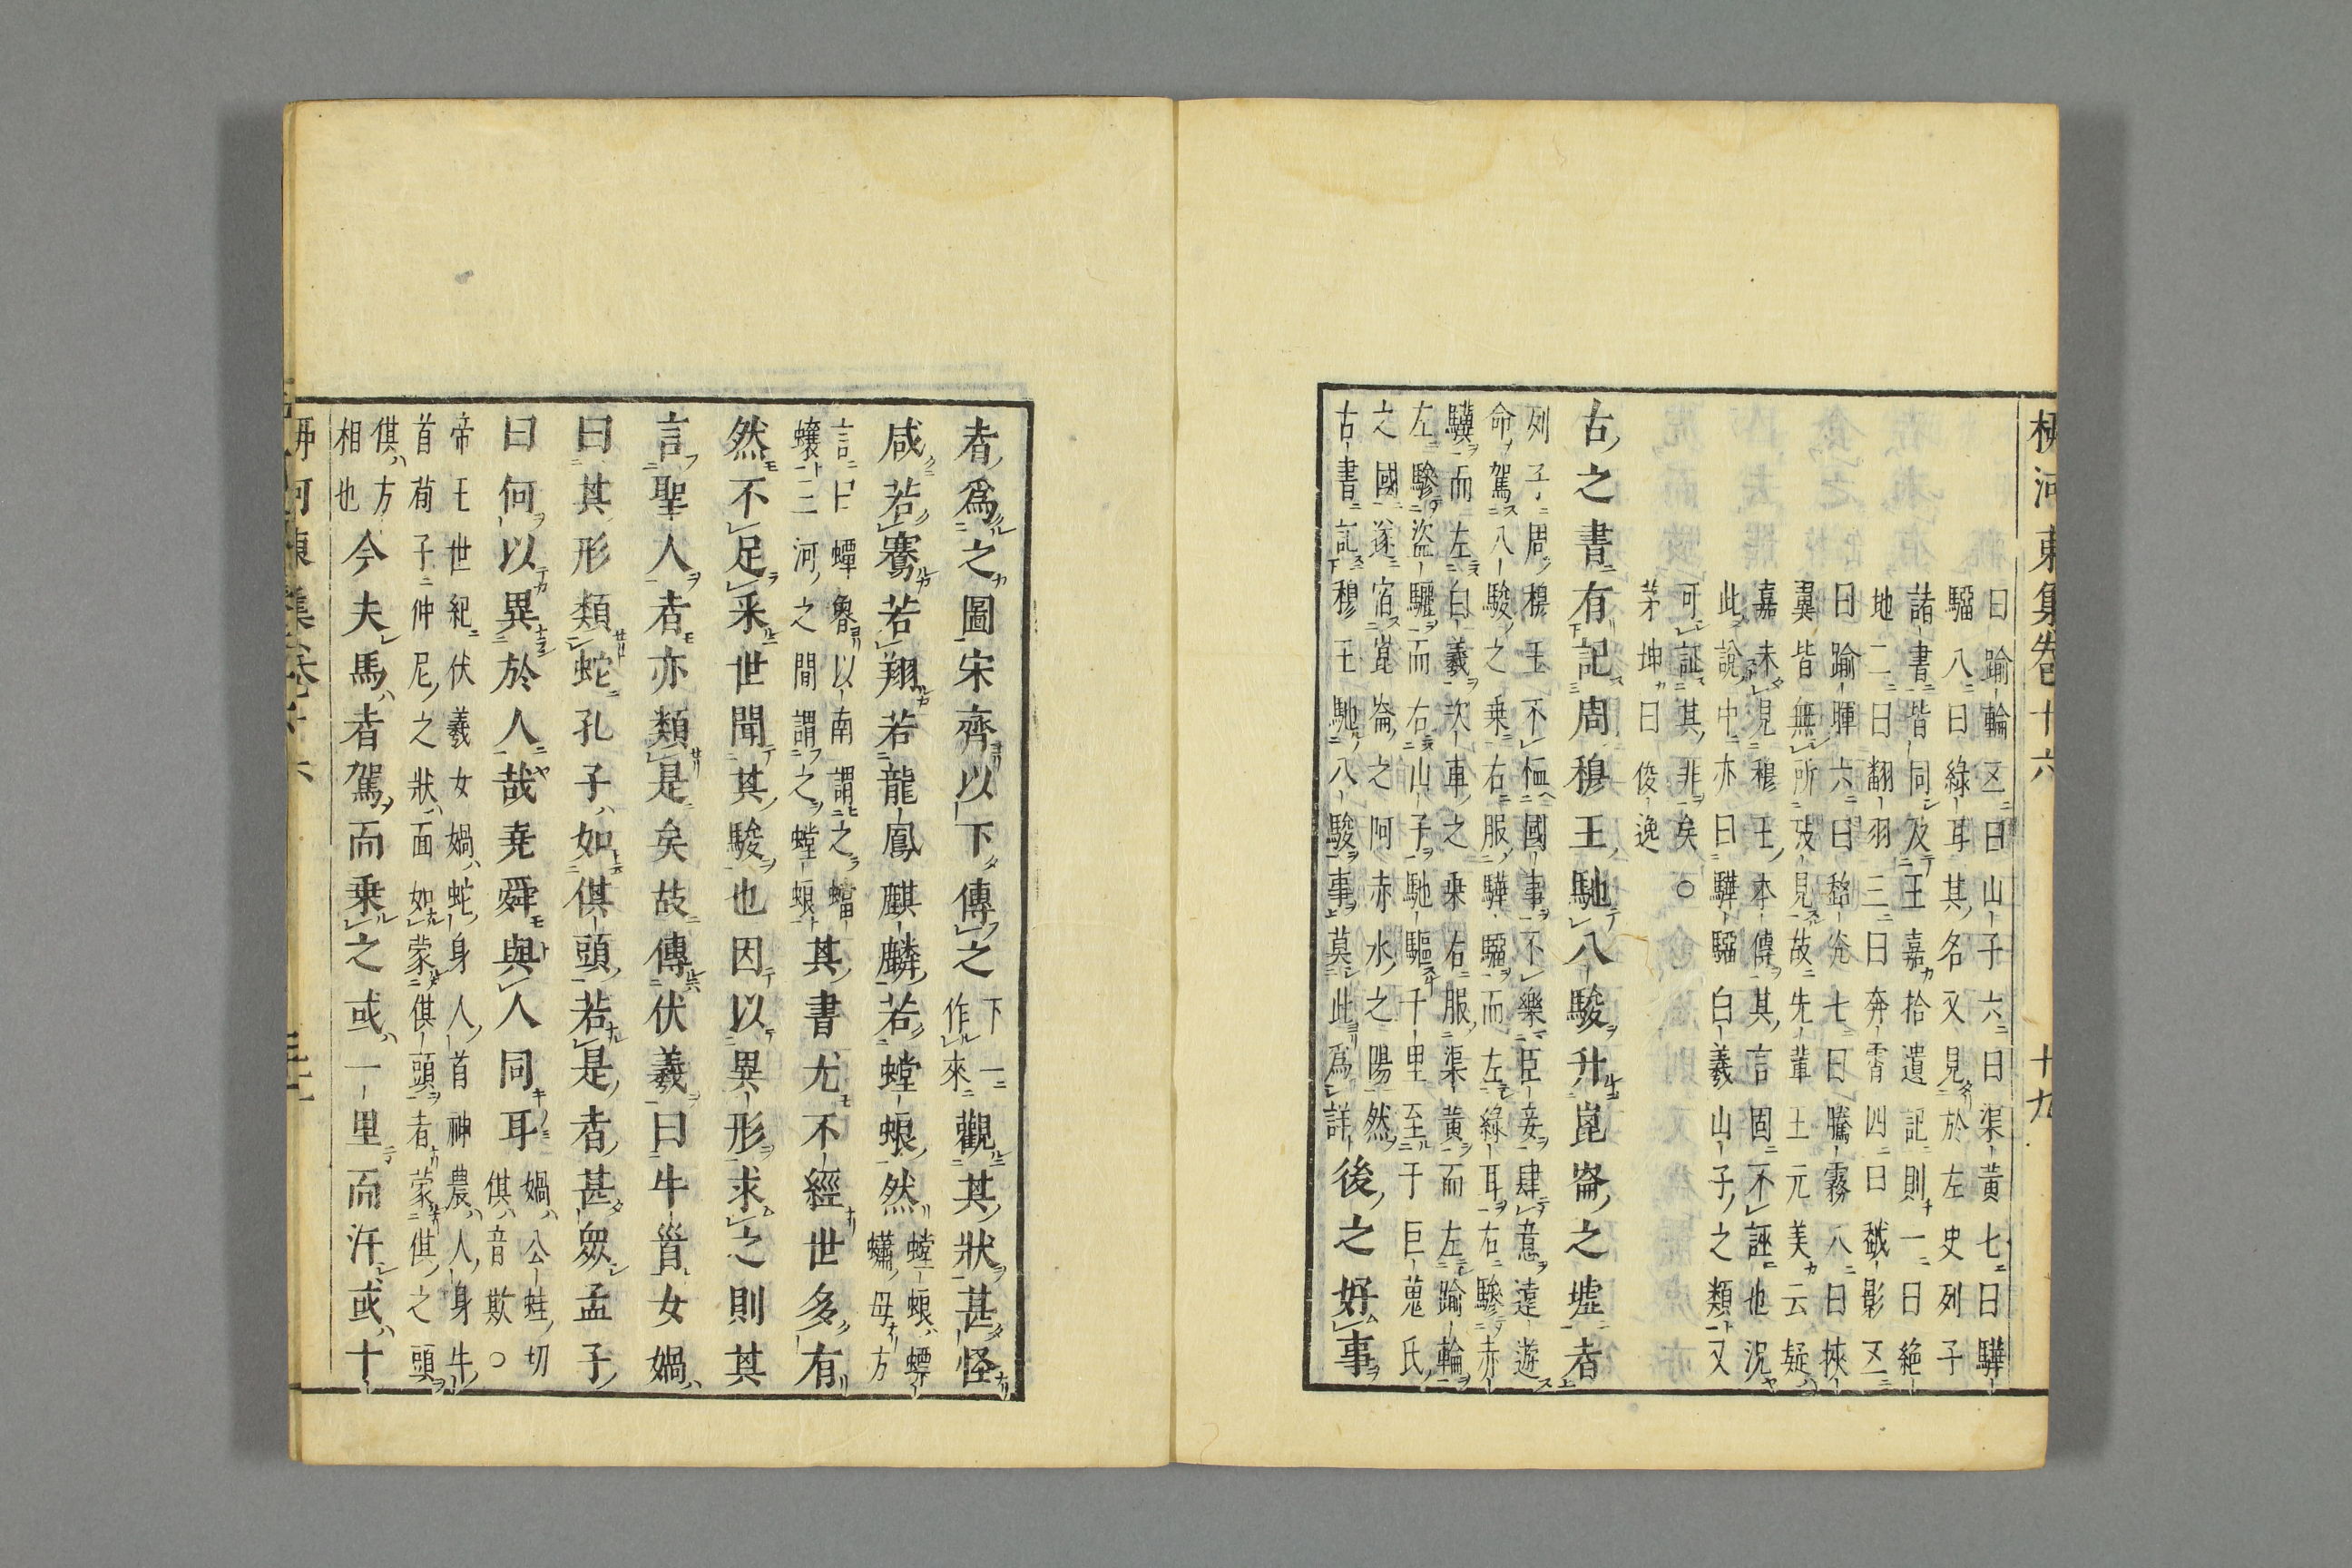 柳河東集卷十六　十九
曰踰輪五曰山子六曰渠黃七曰驊
騮八曰綠耳其名又見於左史列子
諸書皆同及王嘉拾遺記則一曰絶
地二曰翻羽三曰奔霄四曰越影五
曰踰暉六曰超光七曰騰霧八曰挾
翼皆無所攷見故先輩王元美云疑
嘉未見穆王本傳其言固不誣也況
此說中亦曰驊騮白羲山子之類又
可証其非矣○
茅坤曰俊逸
古之書有記周穆王馳八駿升崑崙之墟者
列子周穆王不恤國事不樂臣妾肆意遠遊
命駕八駿之乗右服驊騮而左綠耳右驂赤
驥而左白羲次車之乗右服渠黃而左踰輪
左驂盜驪而右山子馳驅千里至于巨蒐氏
之國遂宿崑崙之阿赤水之陽然
古書記穆王馳八駿事莫此爲詳
後之好事
者爲之圖宋齊以下傳之
下一
作來
觀其狀甚怪
咸若騫若翔若龍鳳麒麟若螳蜋然
螳蜋螵
蠨母方
言曰蟫魯以南謂之蟷
蠰三河之間謂之螳蜋
其書尤不經世多有
然不足采世聞其駿也因以異形求之則其
言聖人者亦類是矣故傳伏羲曰牛首女媧
曰其形類蛇孔子如倛頭若是者甚衆孟子
曰何以異於人哉堯舜與人同耳
媧公蛙切
倛音欺○
帝王世紀伏羲女媧蛇身人首神農人身牛
首荀子仲尼之狀面如蒙倛頭者蒙倛之頭
倛方
相也
今夫馬者駕而乗之或一里而汗或十